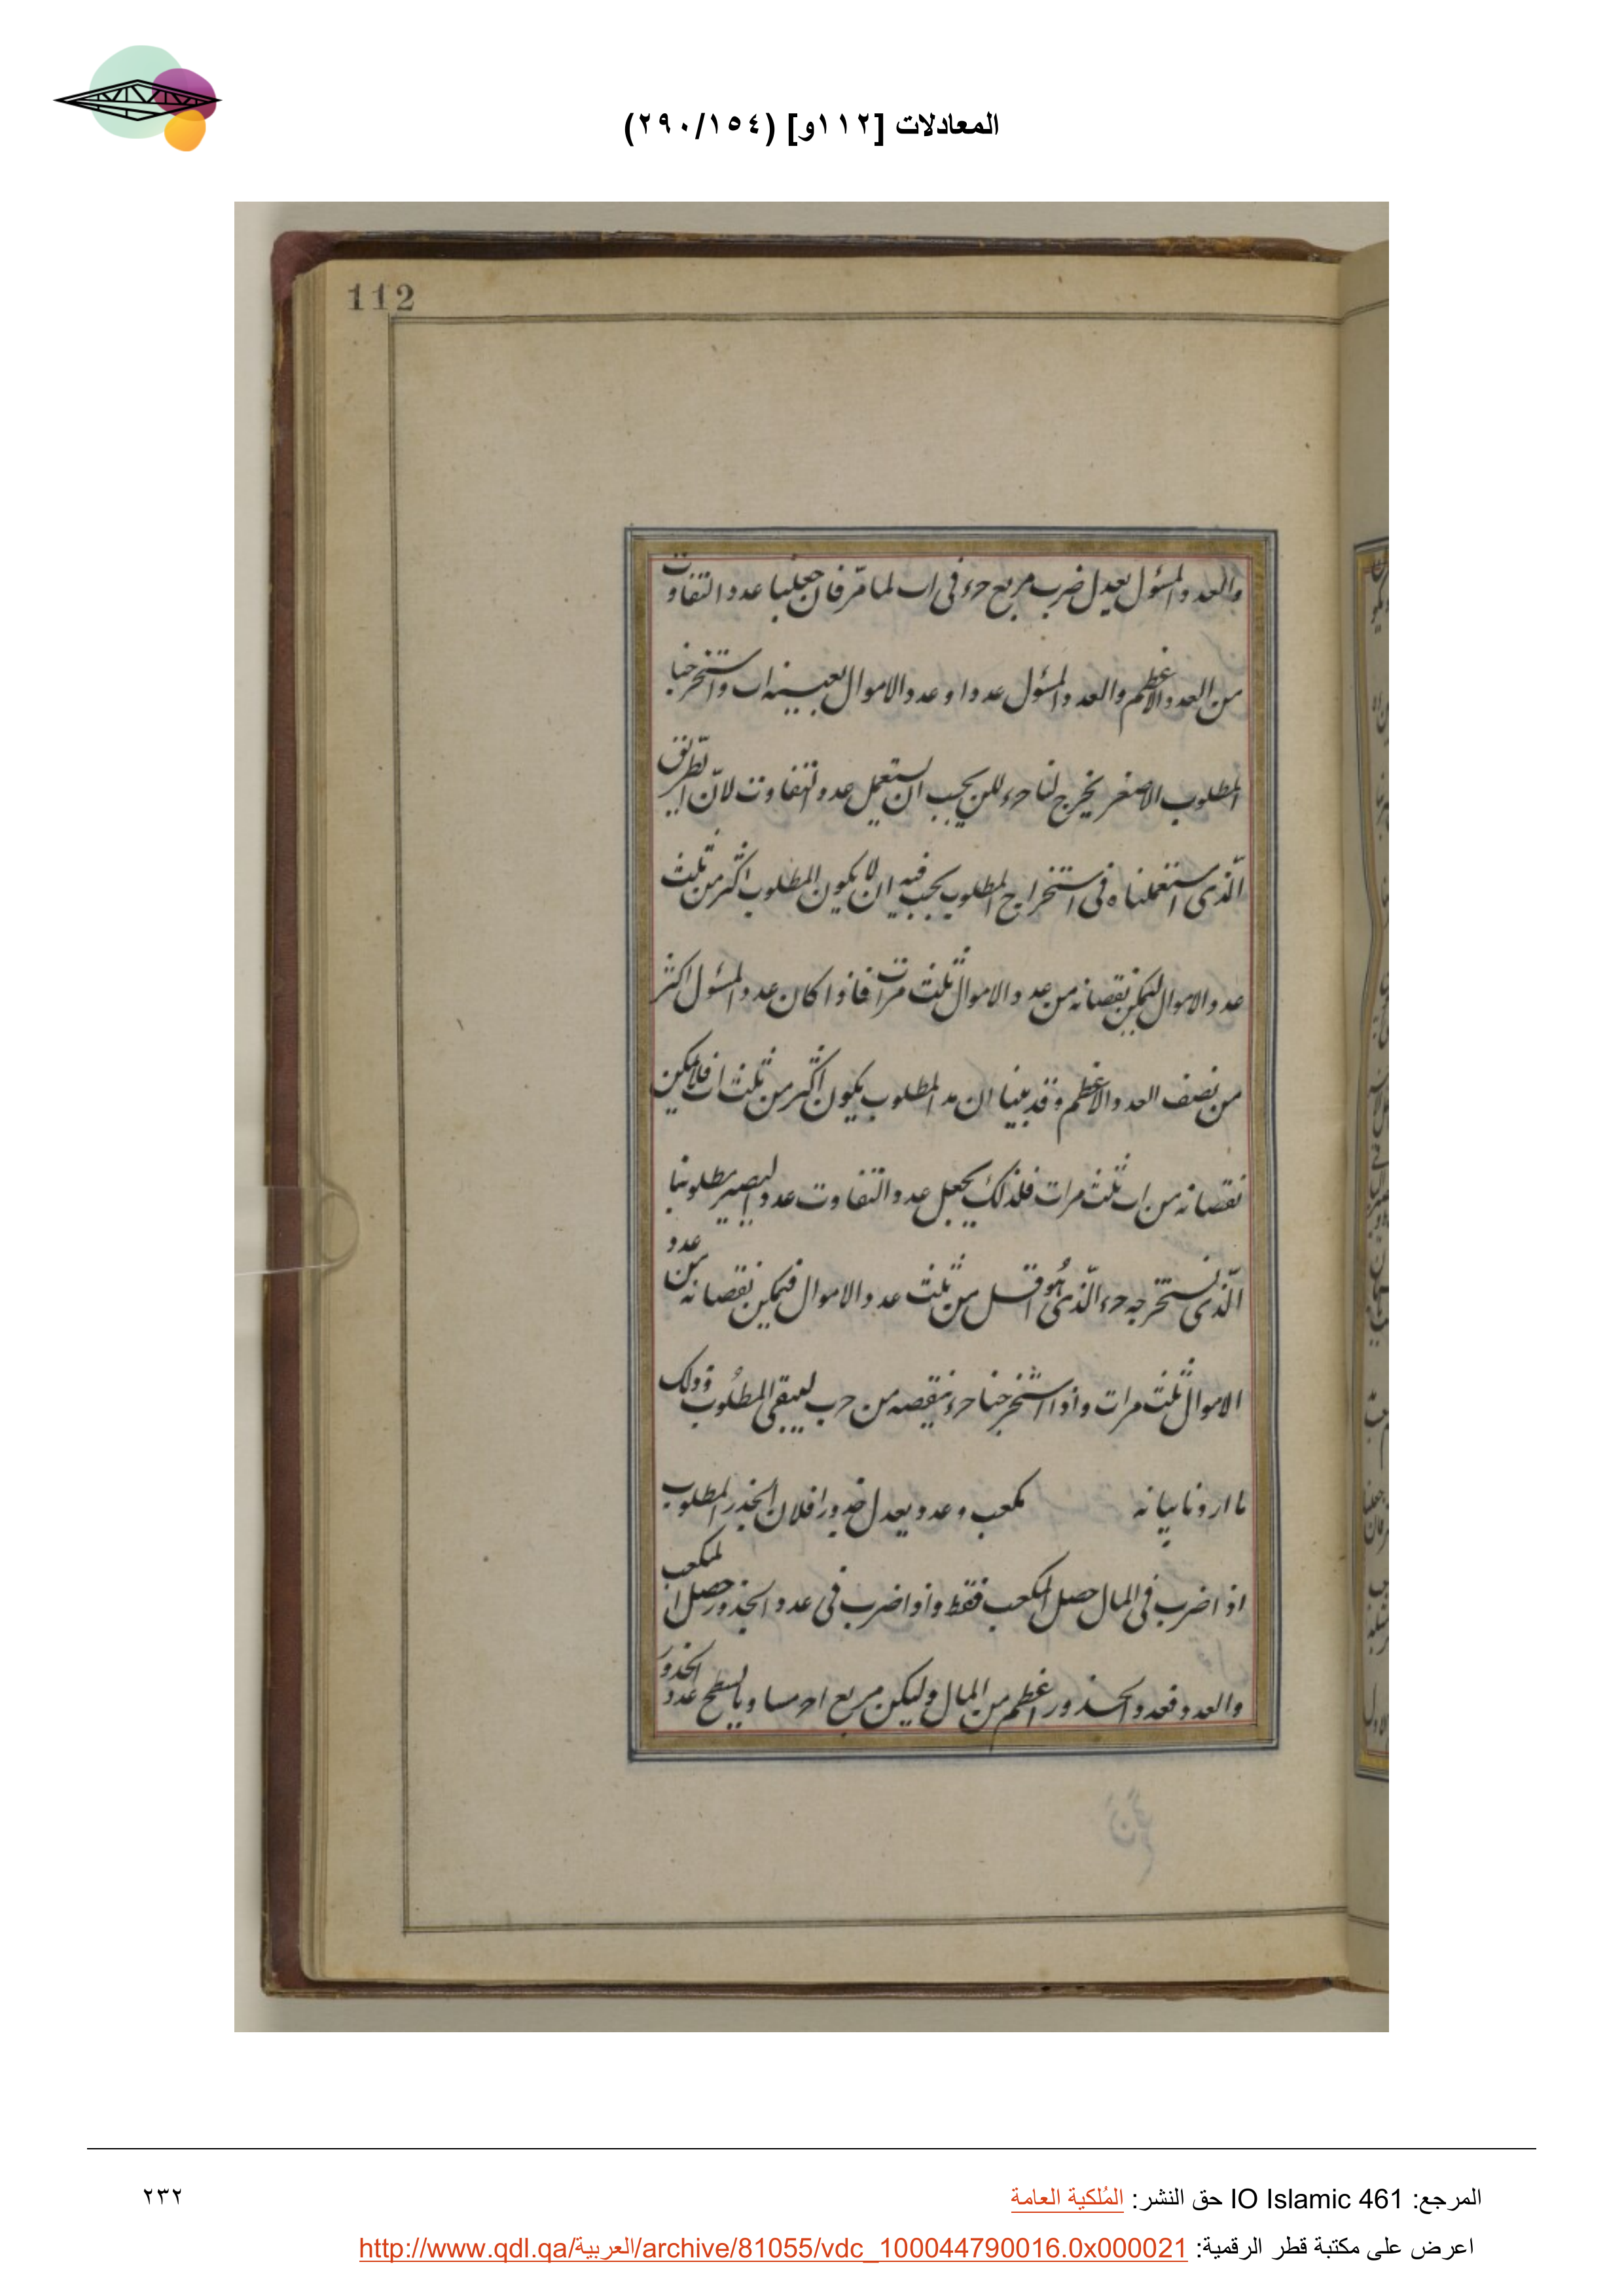 المعادلات [١١٢و] (٢٩٠/١٥٤)
112
والعدد المسؤل يعدل ضرب مربع حرء فى اب لما مرّ فان جعلنا عدد التفاوت
من العدد الاعظم والعدد المسؤل عددا وعدد الاموال بعينه اب واستخرجنا
المطلوب الاصغر يخرج لنا حرء لكن يجب ان يستعمل عدد التفاوت لانّ الطريق
الّذى استعملناه فى استخراج المطلوب يجب فيه ان لا يكون المطلوب اكثر من ثلث
عدد الاموال ليمكن نقصانه من عدد الاموال ثلث مرات فاذا كان عدد المسؤل اكثر
من نصف العدد الاعظم وقد بينا ان المطلوب يكون اكثر من ثلث اب فلا يمكن
نقصانه من اب ثلث مرات فلذلك يجعل عدد التفاوت عددا ليصير مطلوبنا
الّذى نستخرجه حرء الّذى هُو اقل من ثلث عدد الاموال فيمكن نقصانه من عدد
الاموال ثلث مرات واذا استخرجنا حرء ننقصه من حرب ليبقى المطلُوب وذلك
ما اردنا بيانه مكعب وعدد يعدل جذورا فلان الجذر المطلوب
اذا ضرب فى المال حصل المكعب فقط واذا ضرب فى عدد الجذور حصل المكعب
والعدد فعدد الجذور اعظم من المال وليكن مربع احر مساويا لسطح عدد الجذور
المرجع: IO Islamic 461 حق النشر: المُلكية العامة
٢٣٢
اعرض على مكتبة قطر الرقمية: http://www.qdl.qa/العربية/archive/81055/vdc_100044790016.0x000021